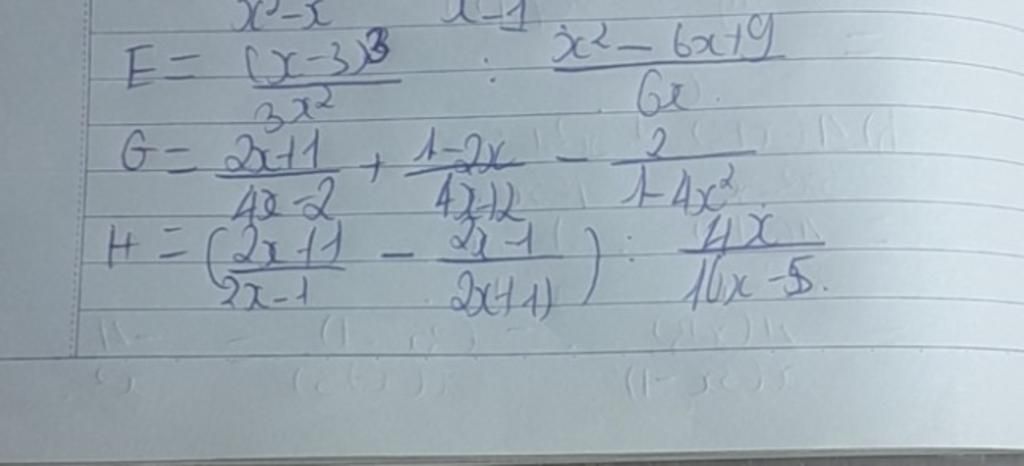 x² - x   x - 1
E = (x-3)³ / 3x² : x² - 6x + 9 / 6x
G = 2x+1 / 4x-2 + 1-2x / 4x+2 - 2 / 1-4x²
H = (2x+1 / 2x-1 - 2x-1 / 2x+1) : 4x / 10x-5.